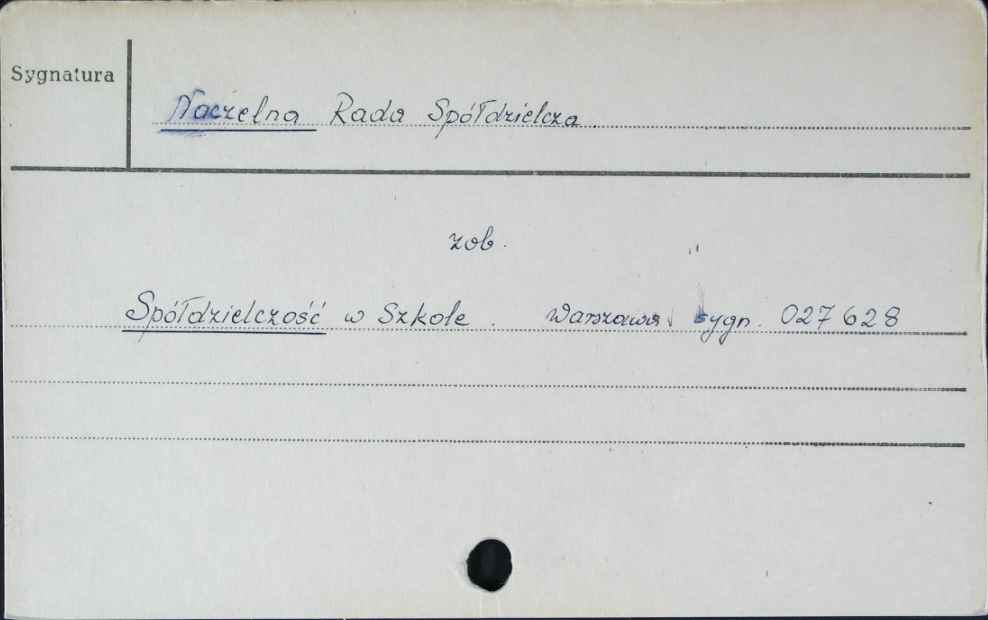 Sygnatura
Naczelna Rada Spółdzielcza.
zob.
Spółdzielczość w Szkole. Warszawa sygn. 027628